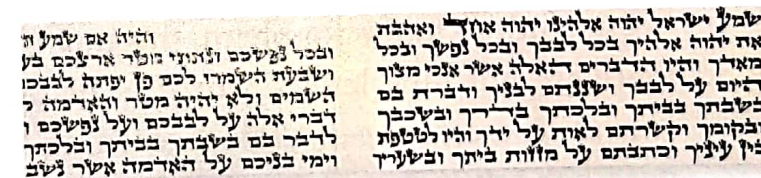 שמע ישראל יהוה אלהינו יהוה אחד ואהבת
את יהוה אלהיך בכל לבבך ובכל נפשך ובכל
מאדך והיו הדברים האלה אשר אנכי מצוך
היום על לבבך ושננתם לבניך ודברת בם
בשבתך בביתך ובלכתך בדרך ובשכבך
ובקומך וקשרתם לאות על ידך והיו לטטפת
בין עיניך וכתבתם על מזזות ביתך ובשעריך
והיה אם שמע
ובכל נפשכם ונתתי מטר ארצכם
ושבעת השמרו לכם פן יפתה לבבכם
השמים ולא יהיה מטר והאדמה
דברי אלה על לבבכם ועל נפשכם
לדבר בם בשבתך בביתך ובלכתך
וימי בניכם על האדמה אשר נשב